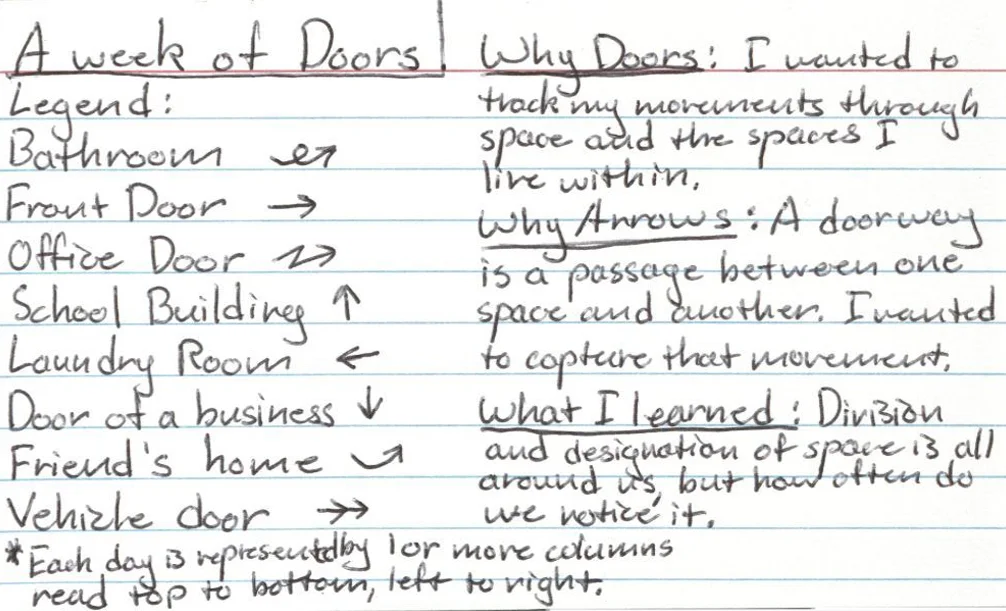 A week of Doors
Legend:
Bathroom
Front Door →
Office Door
School Building ↑
Laundry Room ←
Door of a business ↓
Friend's home
Vehicle door
*Each day is represented by 1 or more columns
read top to bottom, left to right.
Why Doors: I wanted to
track my movements through
space and the spaces I
live within.
Why Arrows: A doorway
is a passage between one
space and another. I wanted
to capture that movement.
What I learned: Division
and designation of space is all
around us, but how often do
we notice it.